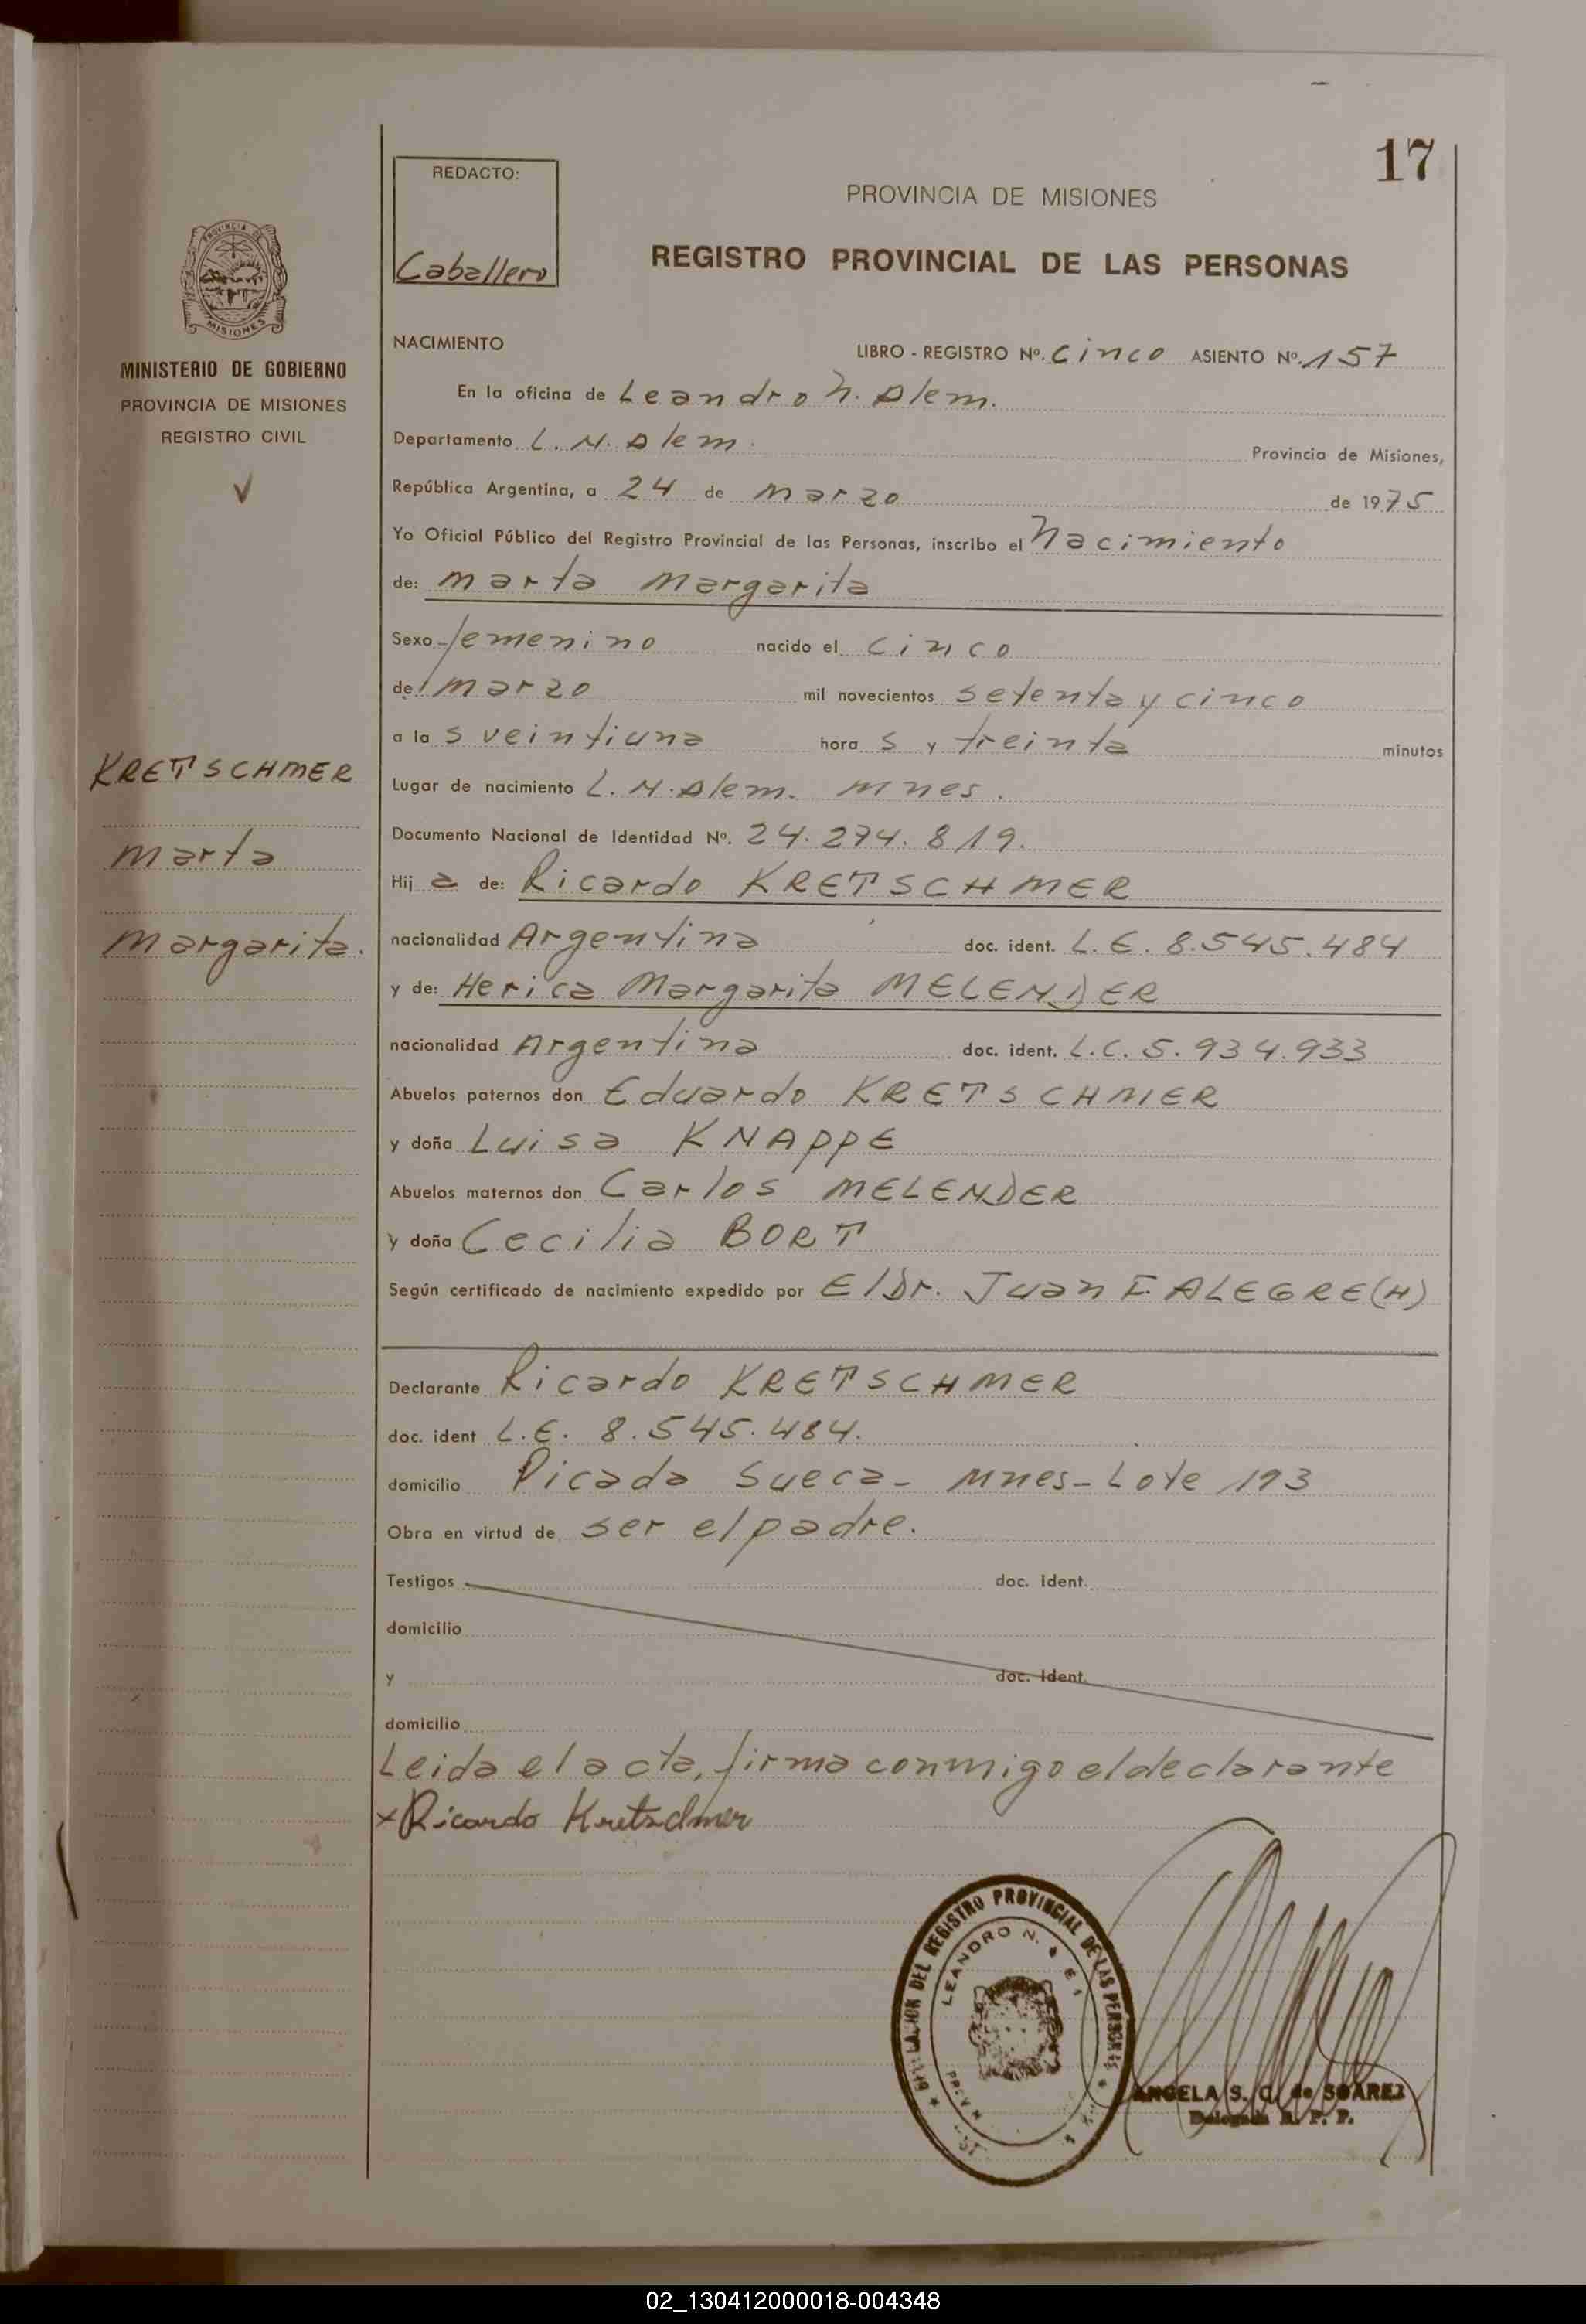 17
REDACTO:
Caballero
PROVINCIA DE MISIONES
REGISTRO PROVINCIAL DE LAS PERSONAS
PROVINCIA DE
MISIONES
MINISTERIO DE GOBIERNO
PROVINCIA DE MISIONES
REGISTRO CIVIL
KRETSCHMER
Marta
Margarita.
NACIMIENTO LIBRO - REGISTRO Nº. Cinco ASIENTO Nº. 157
En la oficina de Leandro N. Alem.
Departamento L. N. Alem. Provincia de Misiones,
República Argentina, a 24 de Marzo de 1975
Yo Oficial Público del Registro Provincial de las Personas, inscribo el Nacimiento
de: Marta Margarita
Sexo femenino nacido el Cinco
de Marzo mil novecientos setenta y cinco
a la s veintiuna hora s y treinta minutos
Lugar de nacimiento L. N. Alem. Mnes.
Documento Nacional de Identidad Nº. 24.274.819.
Hij a de: Ricardo KRETSCHMER
nacionalidad Argentina doc. ident. L.E. 8.545.484
y de: Herica Margarita MELENDER
nacionalidad Argentina doc. ident. L.C. 5.934.933
Abuelos paternos don Eduardo KRETSCHMER
y doña Luisa KNAPPE
Abuelos maternos don Carlos MELENDER
y doña Cecilia BORT
Según certificado de nacimiento expedido por El Dr. Juan E. ALEGRE (H)
Declarante Ricardo KRETSCHMER
doc. ident L.E. 8.545.484.
domicilio Picada Sueca - Mnes - Lote 193
Obra en virtud de ser el padre.
Testigos doc. ident.
domicilio
y doc. ident.
domicilio
Leida el acta, firma conmigo el declarante
x Ricardo Kretschmer
DEL REGISTRO PROVINCIAL DE LAS PERSONAS
LEANDRO N.
ANGELA S. C. de SOAREZ
Delegada R. P. P.
02_130412000018-004348